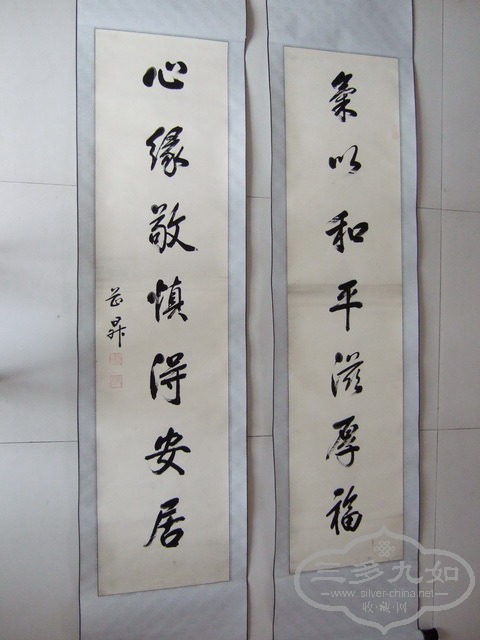 氣以和平滋厚福
心緣敬慎得安居
芸昇
三多九如
www.silver-china.net
收藏网